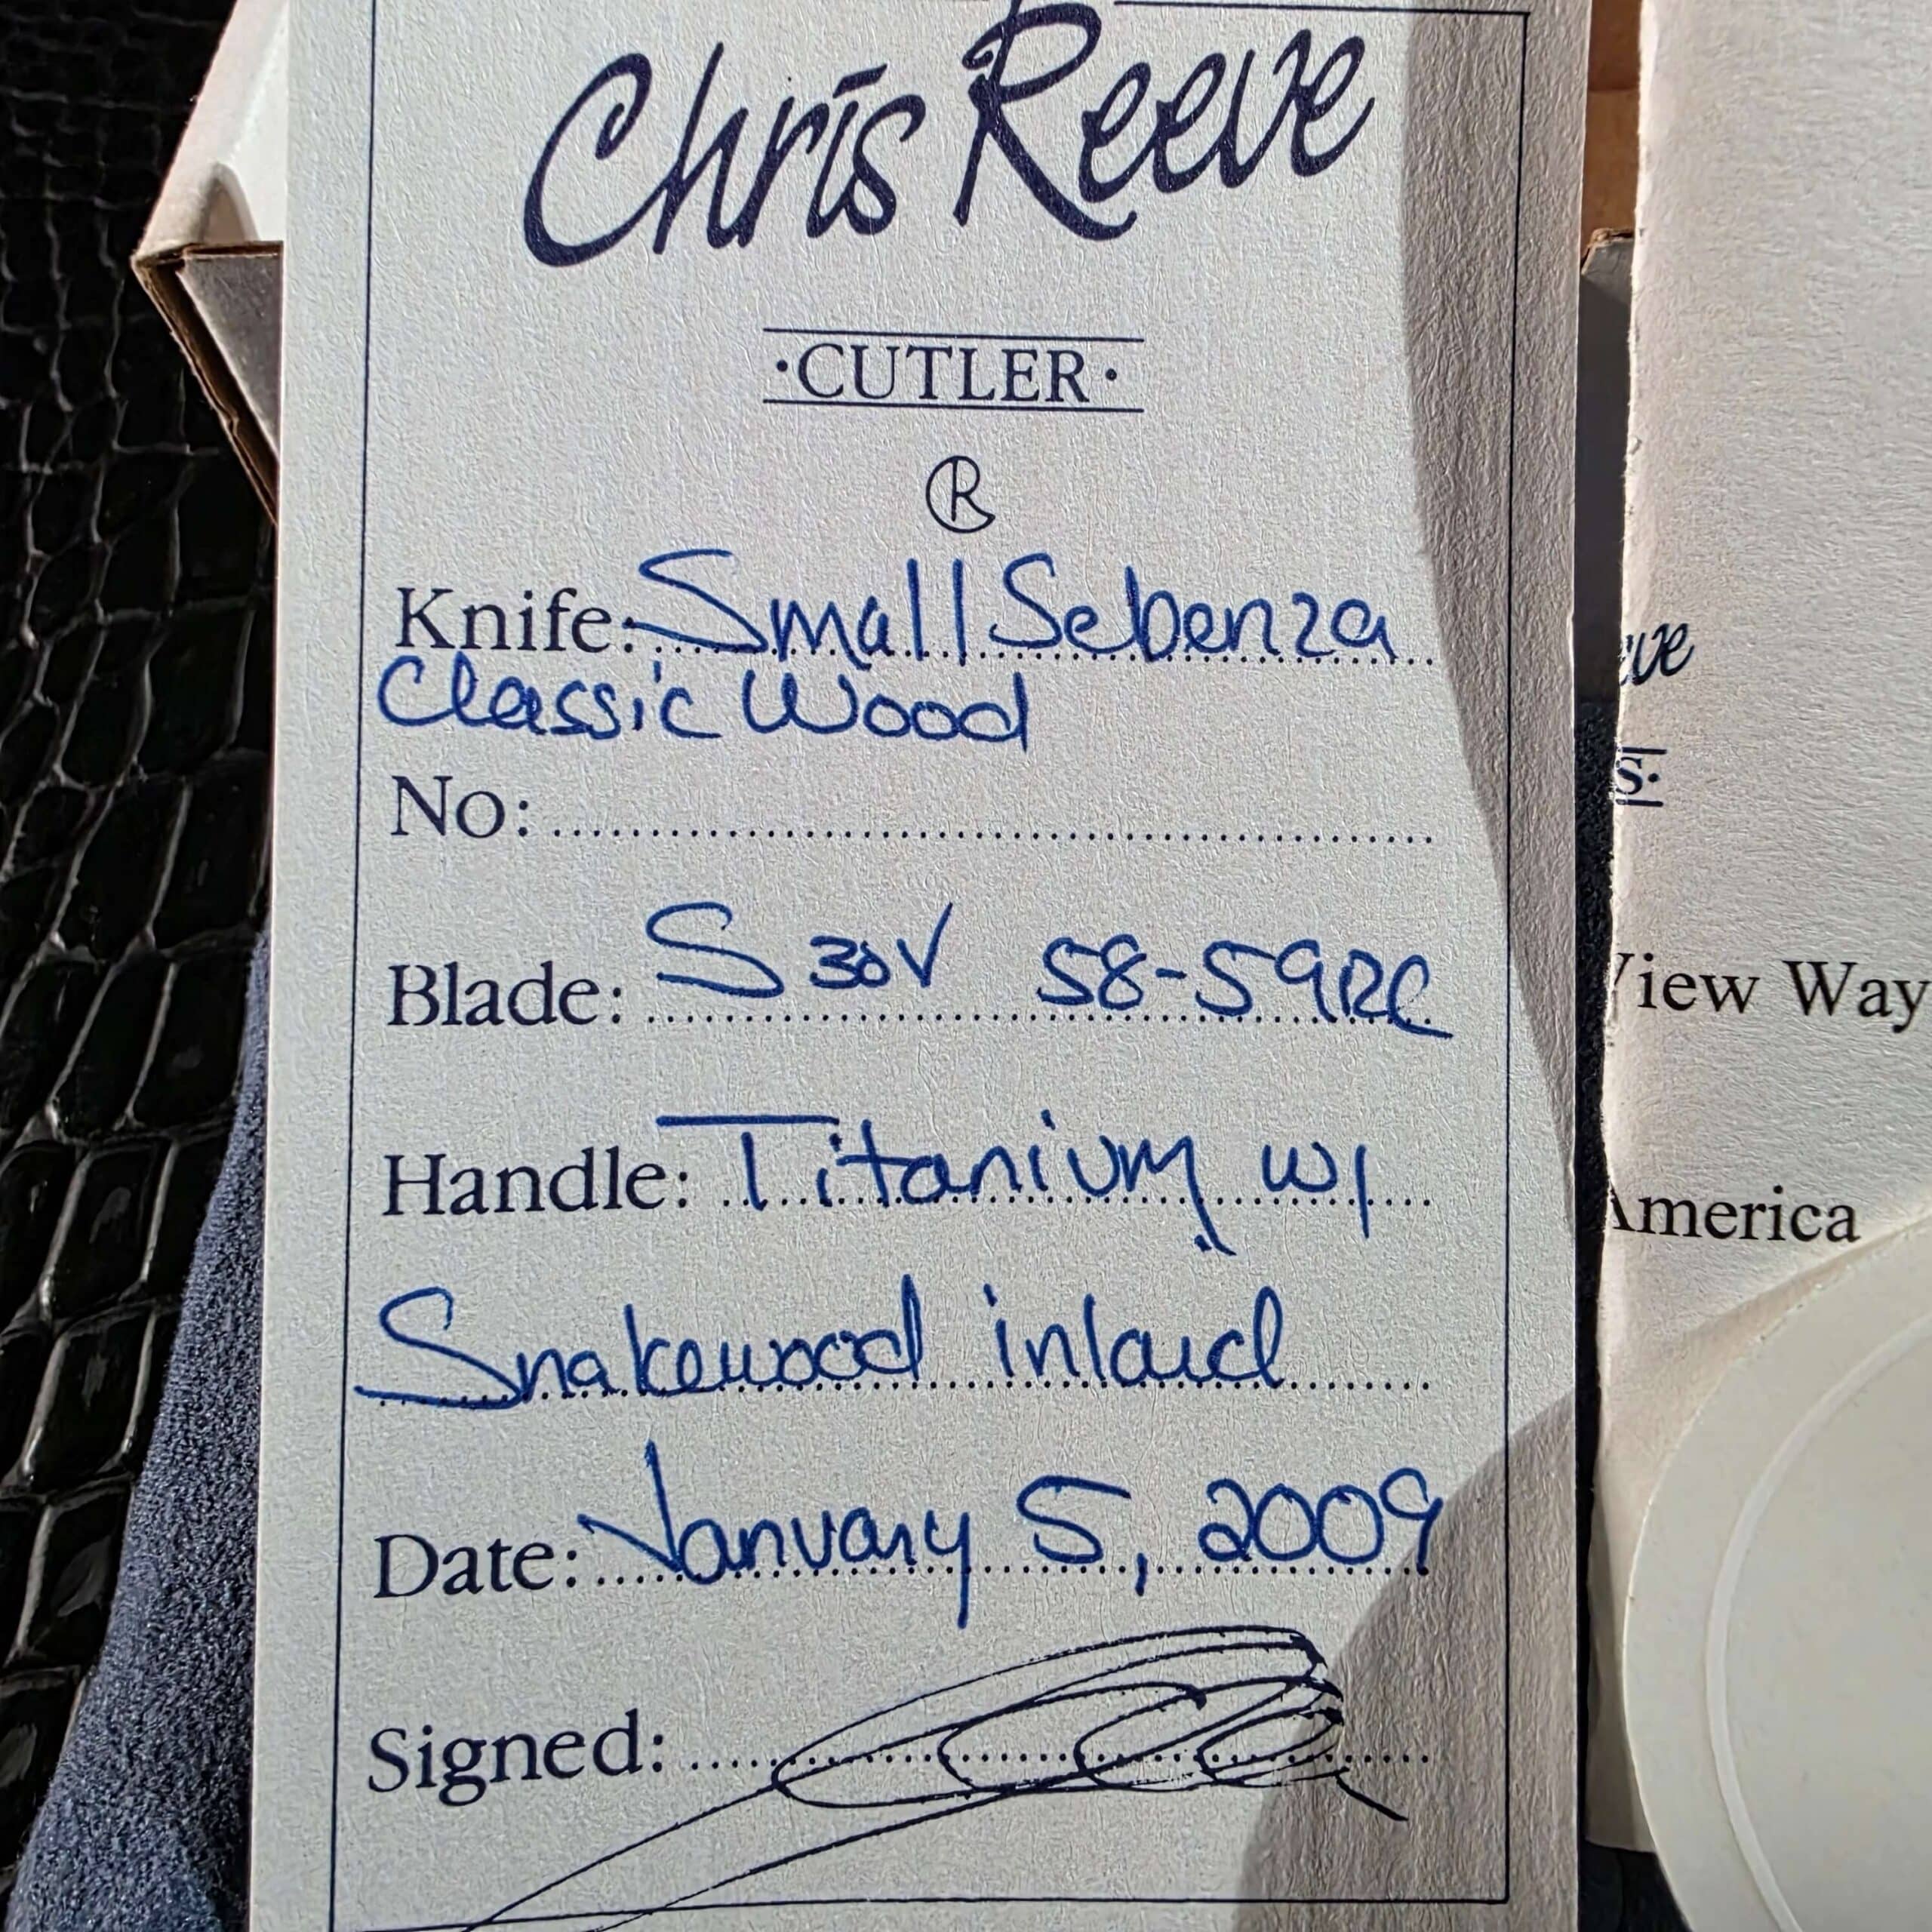 Chris Reeve
·CUTLER·
CR
Knife: Small Sebenza
Classic Wood
No:
Blade: S30V 58-59RC
Handle: Titanium w/
Snakewood inlaid
Date: January 5, 2009
Signed:
eve
S·
View Way
America